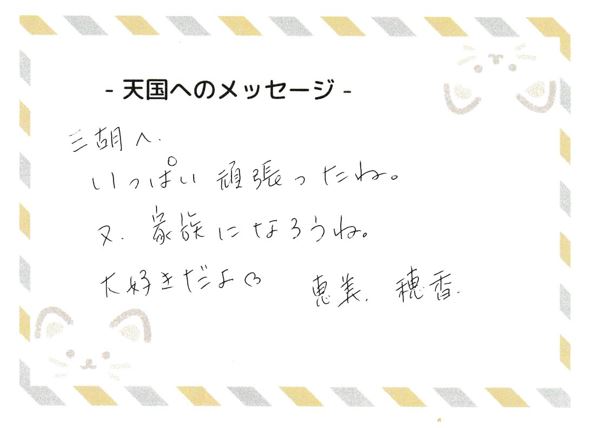 - 天国へのメッセージ -
三胡へ.
いっぱい 頑張ったね。
又. 家族になろうね。
大好きだよ♡ 恵美. 穂香.